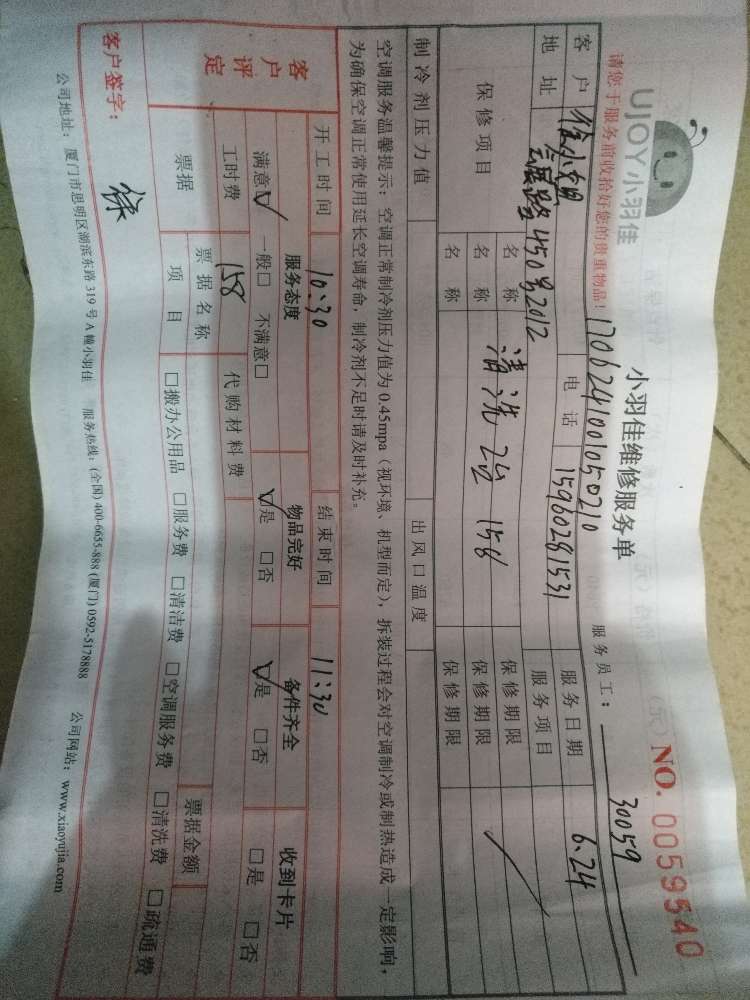 UJOY小羽佳
小羽佳维修服务单
NO. 0059540
请您于服务前收拾好您的贵重物品!
1706241001050210
服务员工: 30059
客户 徐小姐 电话 15960281531 服务日期 6.24
地址 路450号2012 服务项目
保修项目 名称 保修期限
名称 清洗2台 158 保修期限
名称 保修期限
制冷剂压力值 出风口温度
空调服务温馨提示:空调正常制冷剂压力值为0.45mpa(视环境、机型而定),拆装过程会对空调制冷或制热造成一定影响,
为确保空调正常使用延长空调寿命,制冷剂不足时请及时补充。
开工时间 10:30 结束时间 11:30
客户评定 服务态度 物品完好 备件齐全 收到卡片
满意☑ 一般□ 不满意□ ☑是 □否 ☑是 □否 □是 □否
工时费 158 代购材料费
票据 票据名称 票据金额
项目 □搬办公用品 □服务费 □清洁费 □空调服务费 □清洗费 □疏通费
客户签字: 徐
公司地址:厦门市思明区湖滨东路319号A幢小羽佳 服务热线:(全国) 400-6655-888 (厦门) 0592-5178888 公司网站:www.xiaoyujia.com